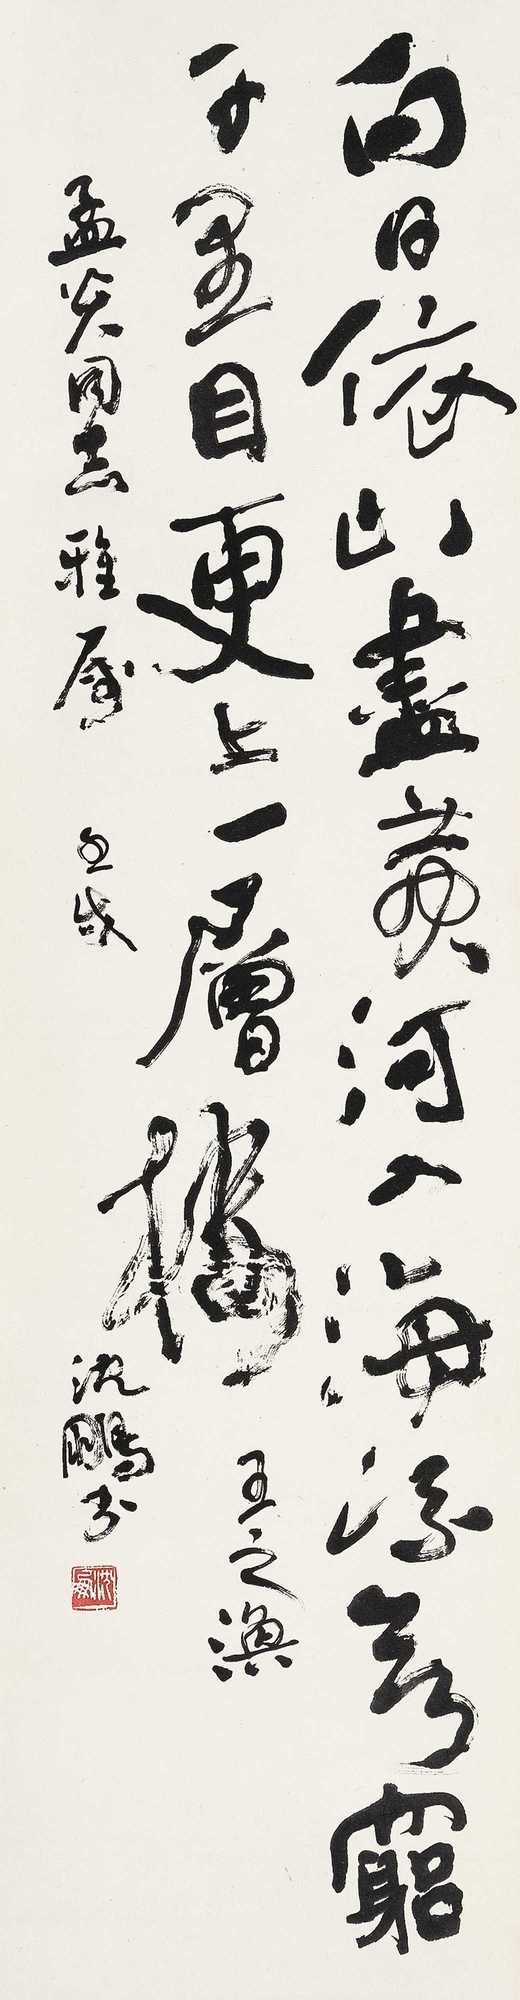 白日依山盡黃河入海流欲窮
千里目更上一層樓 王之渙
孟炎同志雅屬 壬戌 沈鵬书
沈鵬